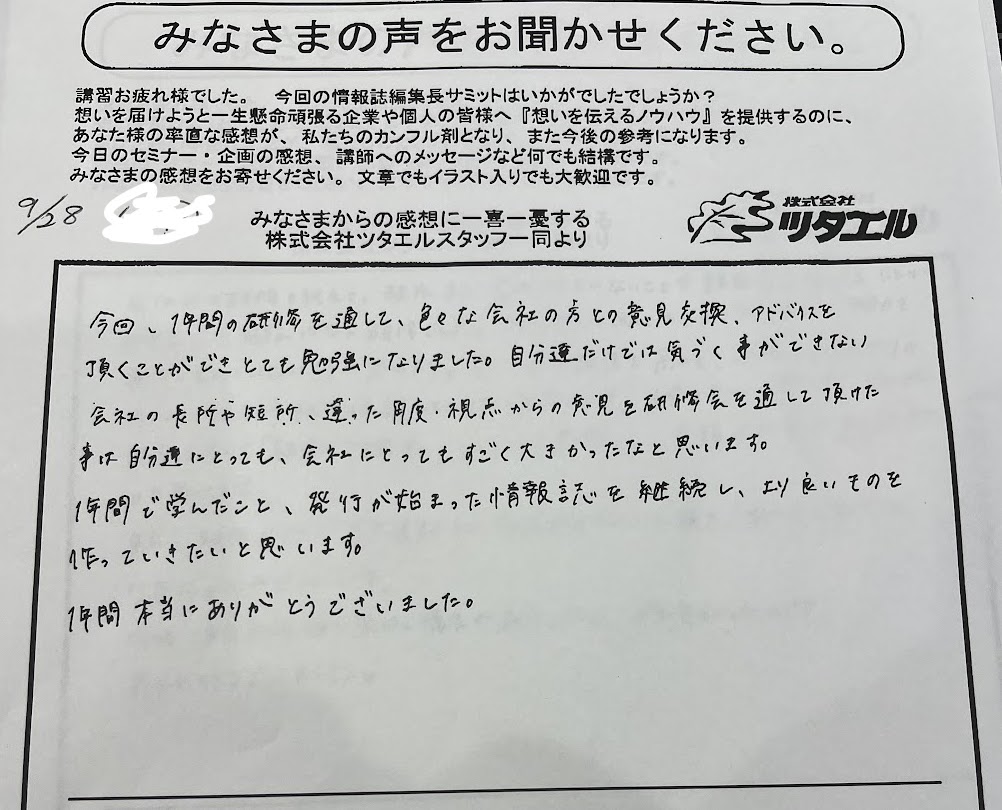 みなさまの声をお聞かせください。
講習お疲れ様でした。 今回の情報誌編集長サミットはいかがでしたでしょうか？
想いを届けようと一生懸命頑張る企業や個人の皆様へ『想いを伝えるノウハウ』を提供するのに、
あなた様の率直な感想が、私たちのカンフル剤となり、また今後の参考になります。
今日のセミナー・企画の感想、講師へのメッセージなど何でも結構です。
みなさまの感想をお寄せください。文章でもイラスト入りでも大歓迎です。
9/28
みなさまからの感想に一喜一憂する
株式会社ツタエルスタッフ一同より
株式会社
ツタエル
今回、1年間の研修を通して、色々な会社の方との意見交換、アドバイスを
頂くことができとても勉強になりました。自分達だけでは気づく事ができない
会社の長所や短所、違った角度・視点からの意見を研修会を通して頂けた
事は自分達にとっても、会社にとってもすごく大きかったなと思います。
1年間で学んだこと、発行が始まった情報誌を継続し、より良いものを
作っていきたいと思います。
1年間本当にありがとうございました。